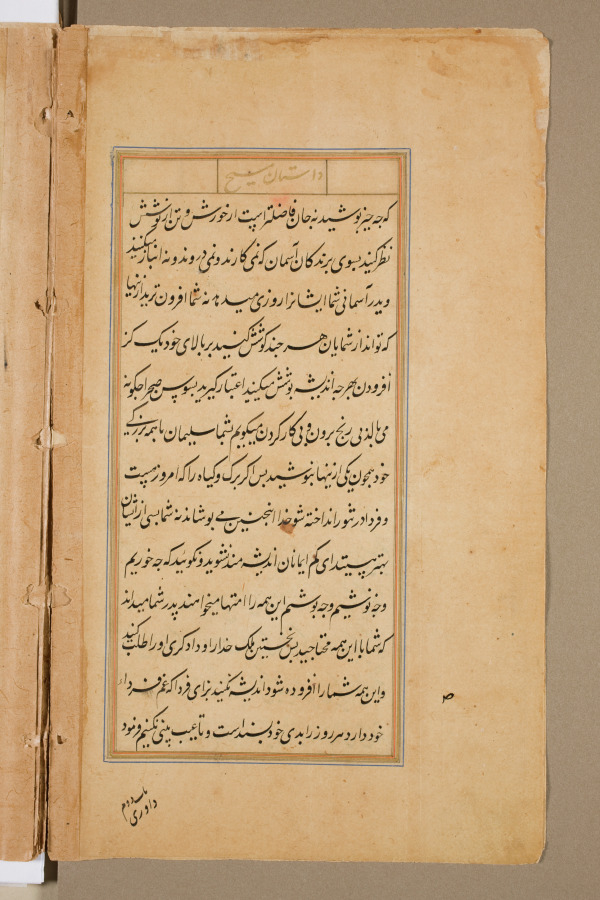 داستان مسیح
که چه چیز بوشید نه جان فاضلتر است از خورش و تن از پوشش
نظر کنید بسوی پرندکان آسمان که نمی کارند و نمی دروند و نه انبار میکنند
و پدر آسمانی شما ایشانرا روزی میدهد نه شما افزون ترید از اینها
که تواند از شمایان هر چند کوشش کنید بر بالای خود یک کز
افزودن بهر چه اندیشه پوشش میکنید اعتبار گیرید بسوسن صحرا چکونه
می بالد بی رنج برون و بی کار کردن میکویم بشما سلیمان با همه بزرکی
خود همچون یکی از ینها نپوشید پس اکر برک و کیاه را که امروز هست
و فردا در تنور انداخته شود خدا اینچنین می پوشاند نه شما بسی از ایشان
بهتر هستید ای کم ایمانان اندیشه مند نشوید و نکویید که چه خوریم
و چه نوشیم و چه پوشیم این همه را امتها میخواهند پدر شما میداند
که شما با این همه محتاجید پس نخستین ملک خدا را و دادکری او را طلب کنید
و این همه شما را افزوده شود اندیشه نکنید برای فردا که غم فردا
خود دارد هر روز را بدی خود بسند است و تا عیب بینی نکنیم فرمود
ص
باب دوم
داوری